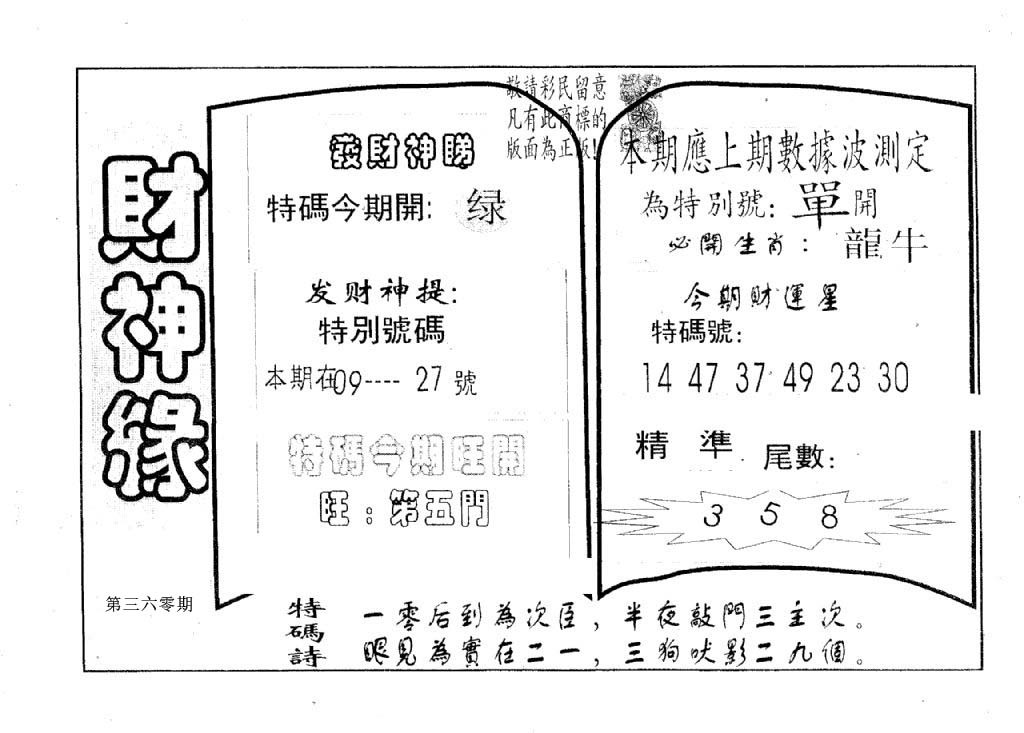 財神緣
第三六零期
發財神勝
特碼今期開: 绿
发财神提:
特別號碼
本期在09---- 27 號
特碼今期旺開
旺：第五門
敬請彩民留意
凡有此商標的
版面為正版!
本期應上期數據波測定
為特別號: 單開
必開生肖：龍牛
今期財運星
特碼號:
14 47 37 49 23 30
精 準 尾數:
3 5 8
特碼詩
一零后到為次臣，半夜敲門三主次。
眼見為實在二一，三狗吠影二九個。